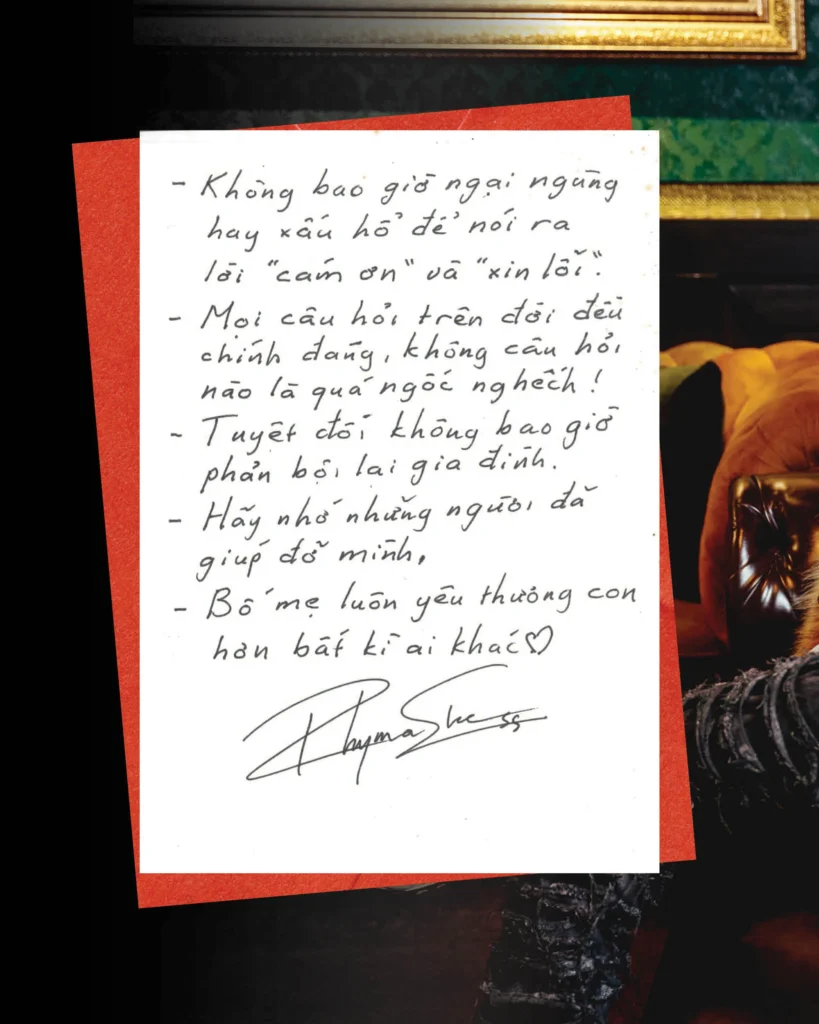 - Không bao giờ ngại ngùng
hay xấu hổ để nói ra
lời "cám ơn" và "xin lỗi".
- Mọi câu hỏi trên đời đều
chính đáng, không câu hỏi
nào là quá ngốc nghếch!
- Tuyệt đối không bao giờ
phản bội lại gia đình.
- Hãy nhớ những người đã
giúp đỡ mình.
- Bố mẹ luôn yêu thương con
hơn bất kì ai khác♡